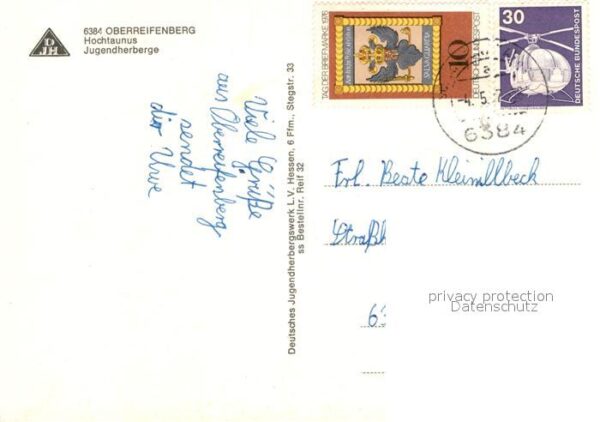 6384 OBERREIFENBERG
Hochtaunus
Jugendherberge
DJH
Viele Grüße
aus Oberreifenberg
sendet
dir Uwe
Deutsches Jugendherbergswerk L.V. Hessen, 6 Ffm., Stegstr. 33
ss Bestellnr. Reif 32
TAG DER BRIEFMARKE 1976
10
DEUTSCHE BUNDESPOST
30
DEUTSCHE BUNDESPOST
6384
Frl. Beate
Straßh
privacy protection
Datenschutz